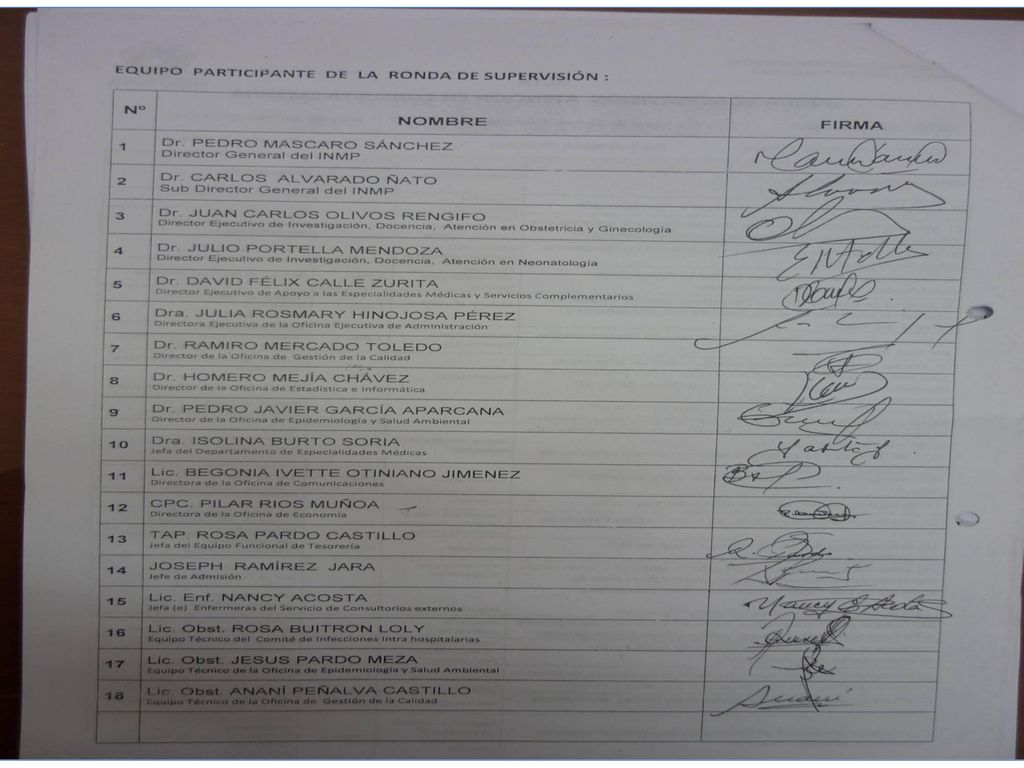 EQUIPO PARTICIPANTE DE LA RONDA DE SUPERVISIÓN :
Nº NOMBRE FIRMA
1 Dr. PEDRO MASCARO SÁNCHEZ
Director General del INMP
2 Dr. CARLOS ALVARADO ÑATO
Sub Director General del INMP
3 Dr. JUAN CARLOS OLIVOS RENGIFO
Director Ejecutivo de Investigación, Docencia, Atención en Obstetricia y Ginecología
4 Dr. JULIO PORTELLA MENDOZA
Director Ejecutivo de Investigación, Docencia, Atención en Neonatología
5 Dr. DAVID FÉLIX CALLE ZURITA
Director Ejecutivo de Apoyo a las Especialidades Médicas y Servicios Complementarios
6 Dra. JULIA ROSMARY HINOJOSA PÉREZ
Directora Ejecutiva de la Oficina Ejecutiva de Administración
7 Dr. RAMIRO MERCADO TOLEDO
Director de la Oficina de Gestión de la Calidad
8 Dr. HOMERO MEJÍA CHÁVEZ
Director de la Oficina de Estadística e Informática
9 Dr. PEDRO JAVIER GARCÍA APARCANA
Director de la Oficina de Epidemiología y Salud Ambiental
10 Dra. ISOLINA BURTO SORIA
Jefa del Departamento de Especialidades Médicas
11 Lic. BEGONIA IVETTE OTINIANO JIMENEZ
Directora de la Oficina de Comunicaciones
12 CPC. PILAR RIOS MUÑOA
Directora de la Oficina de Economía
13 TAP. ROSA PARDO CASTILLO
Jefa del Equipo Funcional de Tesorería
14 JOSEPH RAMÍREZ JARA
Jefe de Admisión
15 Lic. Enf. NANCY ACOSTA
Jefa (e) Enfermeras del Servicio de Consultorios externos
16 Lic. Obst. ROSA BUITRON LOLY
Equipo Técnico del Comité de Infecciones Intra hospitalarias
17 Lic. Obst. JESUS PARDO MEZA
Equipo Técnico de la Oficina de Epidemiología y Salud Ambiental
18 Lic. Obst. ANANÍ PEÑALVA CASTILLO
Equipo Técnico de la Oficina de Gestión de la Calidad